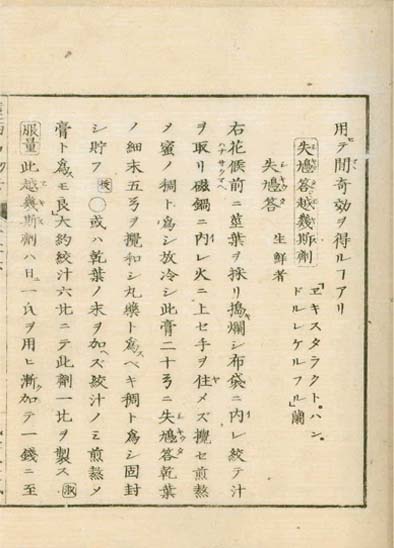 用テ間奇効ヲ得ルヿアリ
失鳩答越幾斯劑
「ヱキスタラクト。ハン。
ドルレケルフル」蘭
失鳩答 生鮮者
右花候前ニ莖葉ヲ採リ搗爛シ布袋ニ内レ絞テ汁
ヲ取リ磁鍋ニ内レ火ニ上セ手ヲ住メズ攪セ煎熬
ヲ蜜ノ稠ト爲シ放冷シ此膏二十ヲニ失鳩答乾葉
ノ細末五ヲヲ攪和シ丸藥ト爲スベキ稠ト爲シ固封
シ貯フ 按 ○或ハ乾葉ノ末ヲ加ヘズ絞汁ノミ煎熬メ
膏ト爲スモ良」大約絞汁六比ニテ此劑一比ヲ製ス
服量此越幾斯劑ハ日一氏ヲ用ヒ漸加テ一錢ニ至